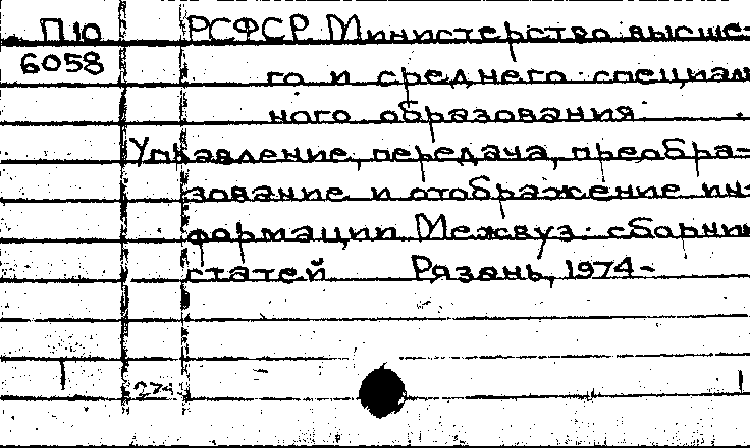 П10 РСФСР Министерство высше-
6058 го и среднего специаль
ного образования.
Управление, передача, преобра-
зование и отображение ин-
формации. Межвуз. сборник
статей Рязань, 1974-
274